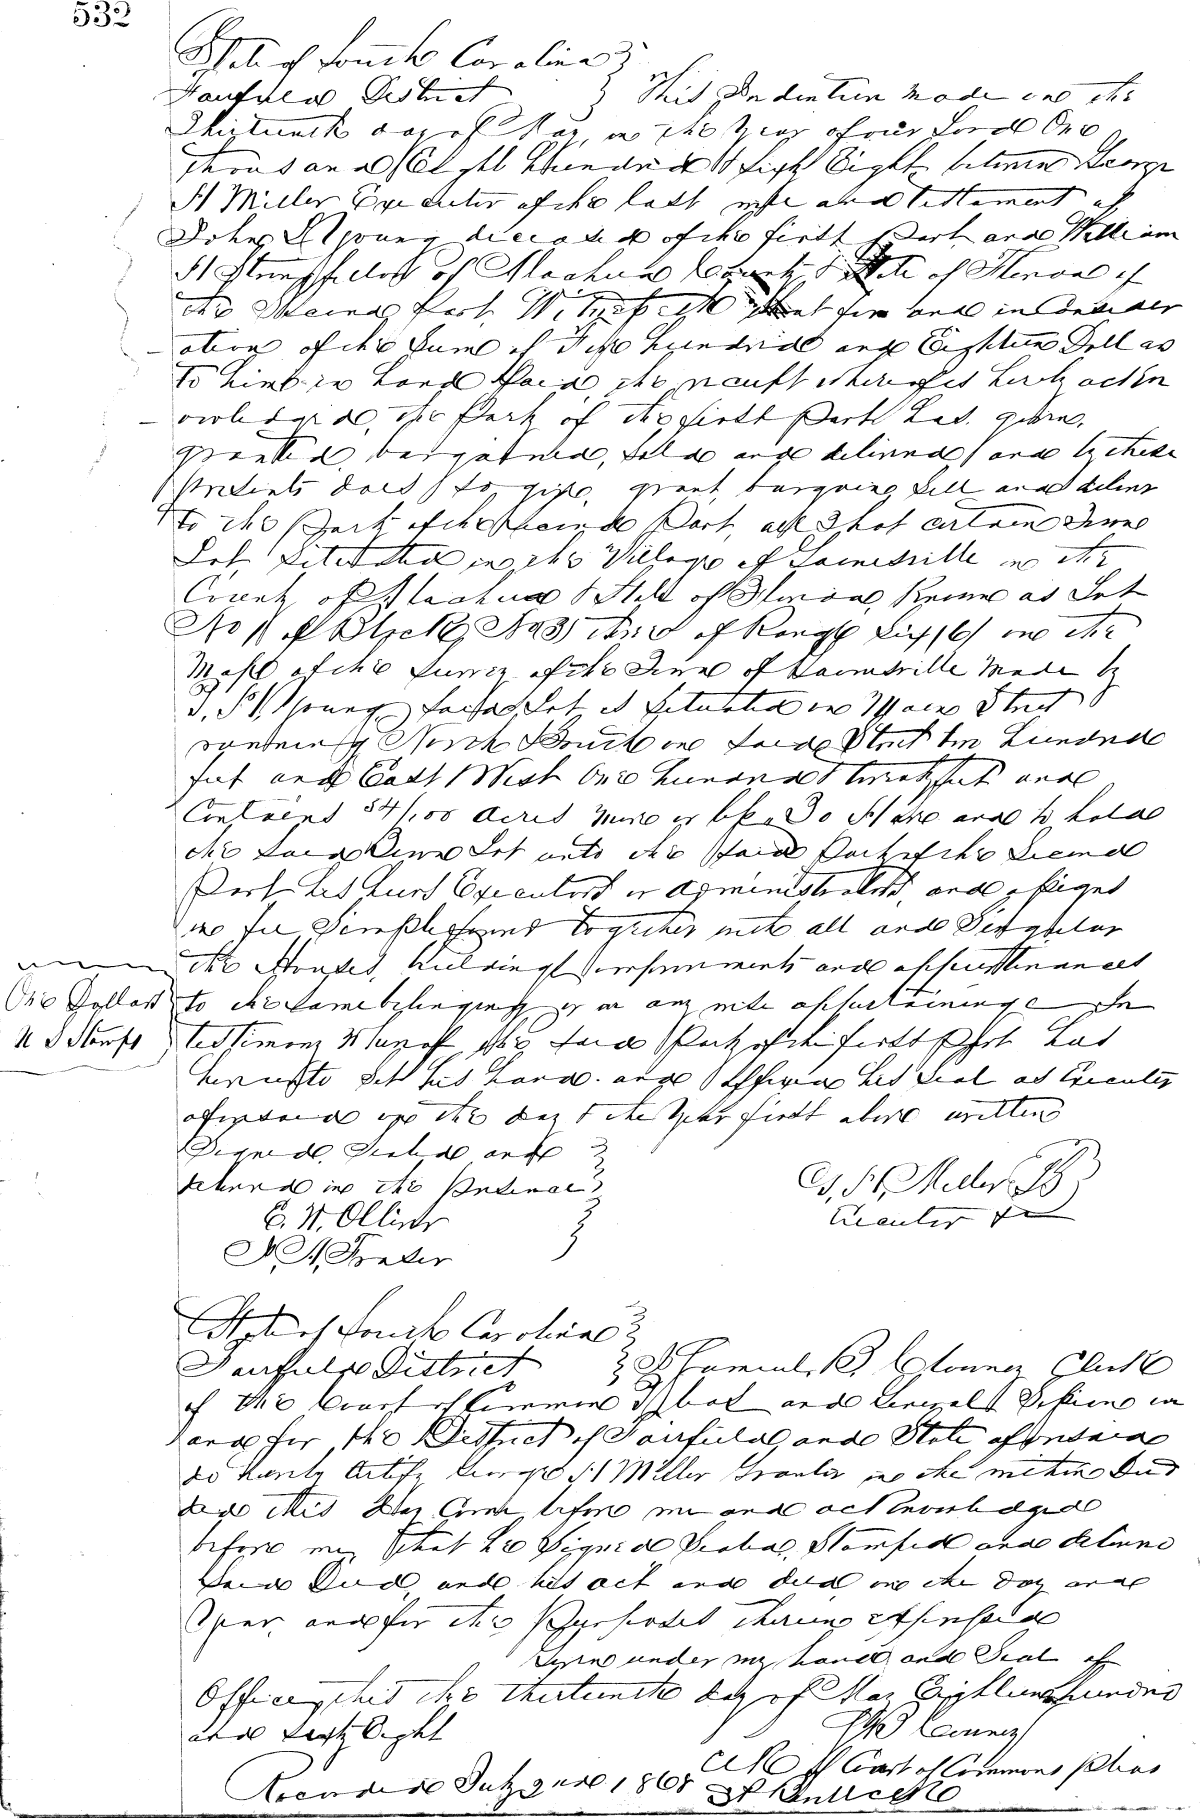 532
State of South Carolina
Fairfield District } This Indenture made on the
Thirteenth day of May, in the Year of our Lord One
thousand Eight Hundred & Sixty Eight between George
H Miller Executor of the last will and testament of
John L Young deceased of the first Part and William
H Stringfellow of Alachua County & State of Florida of
the Second Part, Witnesseth that for and in Consider
ation of the Sum of Five hundred and Eighteen Dollars
to him in hand Paid, the receipt whereof is hereby ackn
owledged, the Party of the first Part has given,
granted, bargained, Sold and delivered and by these
presents does give, grant, bargain, Sell and deliver
to the Party of the Second Part, all that certain Town
Lot Situated in the Village of Gainesville in the
County of Alachua & State of Florida, Known as Lot
No 1 of Block No (3) three of Range Six (6) on the
Map of the Survey of the Town of Gainesville Made by
Young Said Lot is Situated on Main Street
running North & South on Said Street two hundred
feet and East & West One hundred & twenty feet and
Contains 54/100 acres more or less To Have and to hold
the Said Town Lot unto the Said Party of the Second
Part his heirs Executors or administrators, and assigns
in fee Simple together with all and Singular
the Houses, buildings improvements and appurtenances
One Dollar to the Same belonging or in any wise appertaining In
U S Stamps testimony Whereof the Said Party of the first Part has
hereunto Set his hand and Affixed his Seal as Executor
aforesaid on the day & the Year first above written
Signed, Sealed and
delivered in the Presence
G. H. Miller
E. W. Olliver
Executor &c
State of South Carolina
Fairfield District } I Samuel B Clowney Clerk
of the Court of Common Pleas and General Sessions in
and for the District of Fairfield and State aforesaid
do hereby Certify George H Miller Grantor in the within Deed
did this Day Come before me and acknowledged
before me, that he Signed Sealed, Stamped and delivered
Said Deed, and his act and deed on the Day and
Year, and for the Purposes therein expressed
Given under my hand and Seal of
Office, this the thirteenth day of May Eighteen hundred
and Sixty Eight
Clowney
Clk of Court of Common Pleas
Recorded July 2nd 1868